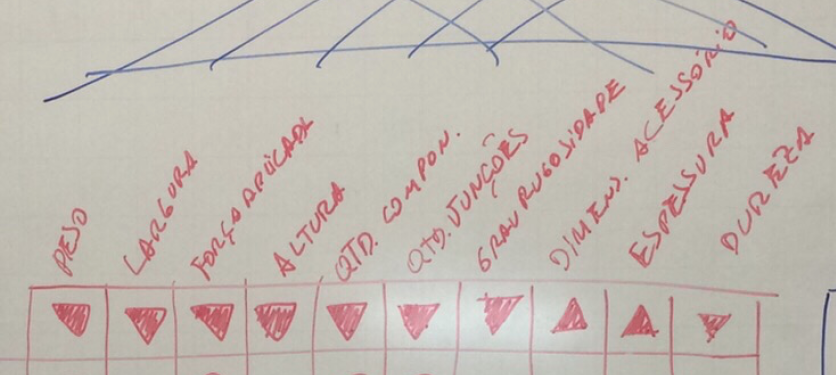 PESO
LARGURA
FORÇA APLICADA
ALTURA
QTD. COMPON.
QTD. FUNÇÕES
GRAU RUGOSIDADE
DIMENS. ACESSÓRIO
ESPESSURA
DUREZA